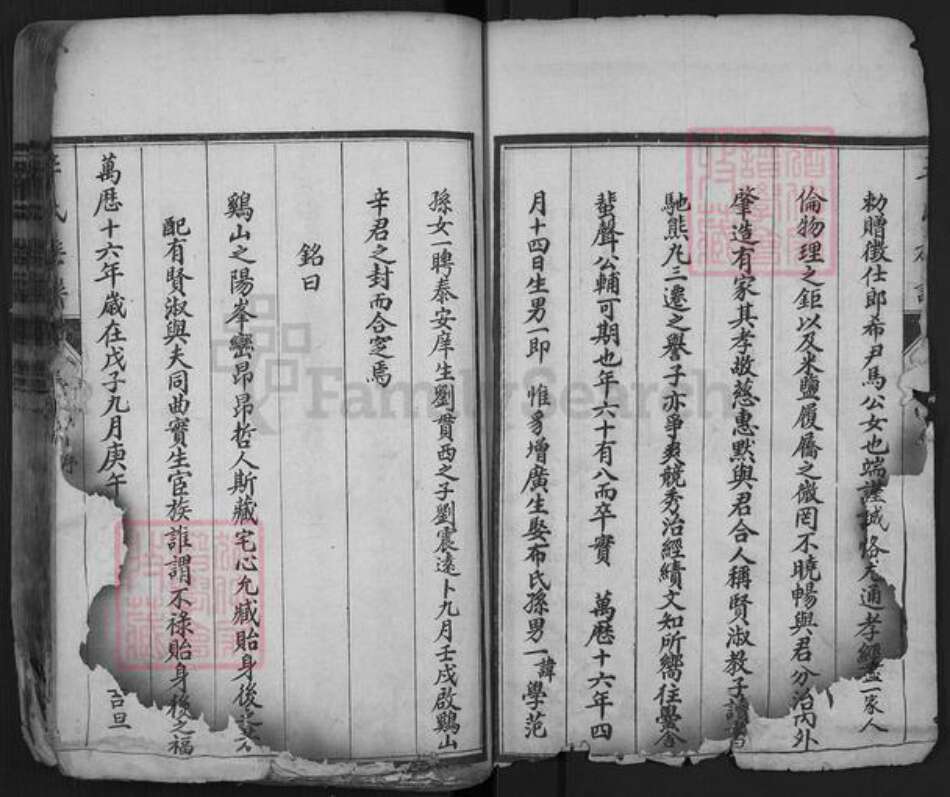 勅贈徵仕郎希尹馬公女也端謹誠恪尤通孝經盡一家人
倫物理之鉅以及米鹽履屩之微罔不曉暢與君分治內外
肇造有家其孝敬慈惠默與君合人稱賢淑教子讀書
馳熊丸三遷之譽子亦爭爽競秀治經績文知所嚮往黌舍
蜚聲公輔可期也年六十有八而卒實 萬曆十六年四
月十四日生男一即 惟豸增廣生娶布氏孫男一諱學范
孫女一聘泰安庠生劉貫西之子劉震遠卜九月壬戌啟鷄山
辛君之封而合窆焉
銘曰
鷄山之陽峯巒昂昂哲人斯藏宅心允臧貽身後之
配有賢淑與夫同曲實生宦族誰謂不祿貽身後之福
萬曆十六年歲在戊子九月庚午 吉旦
氏
序
FamilySearch